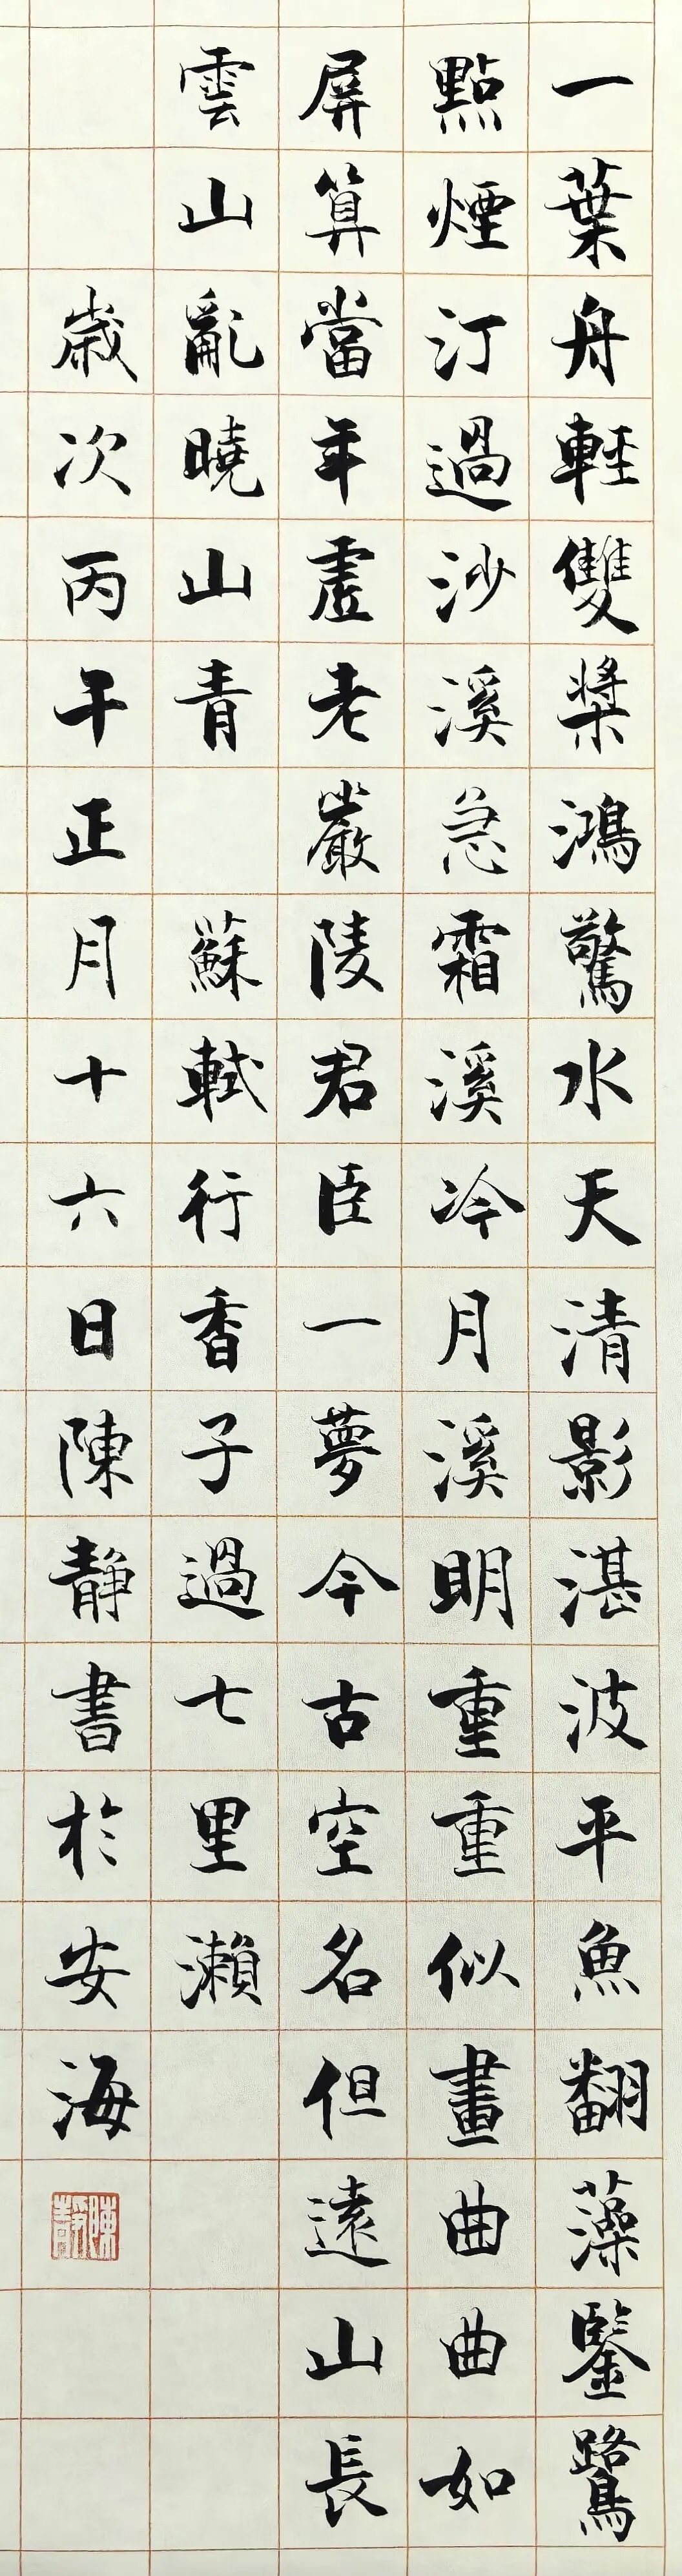 一葉舟輕雙槳鴻驚水天清影湛波平魚翻藻鑒鷺
點煙汀過沙溪急霜溪冷月溪明重重似畫曲曲如
屏算當年虛老嚴陵君臣一夢今古空名但遠山長
雲山亂曉山青 蘇軾行香子過七里瀨
歲次丙午正月十六日陳静書於安海
陳靜